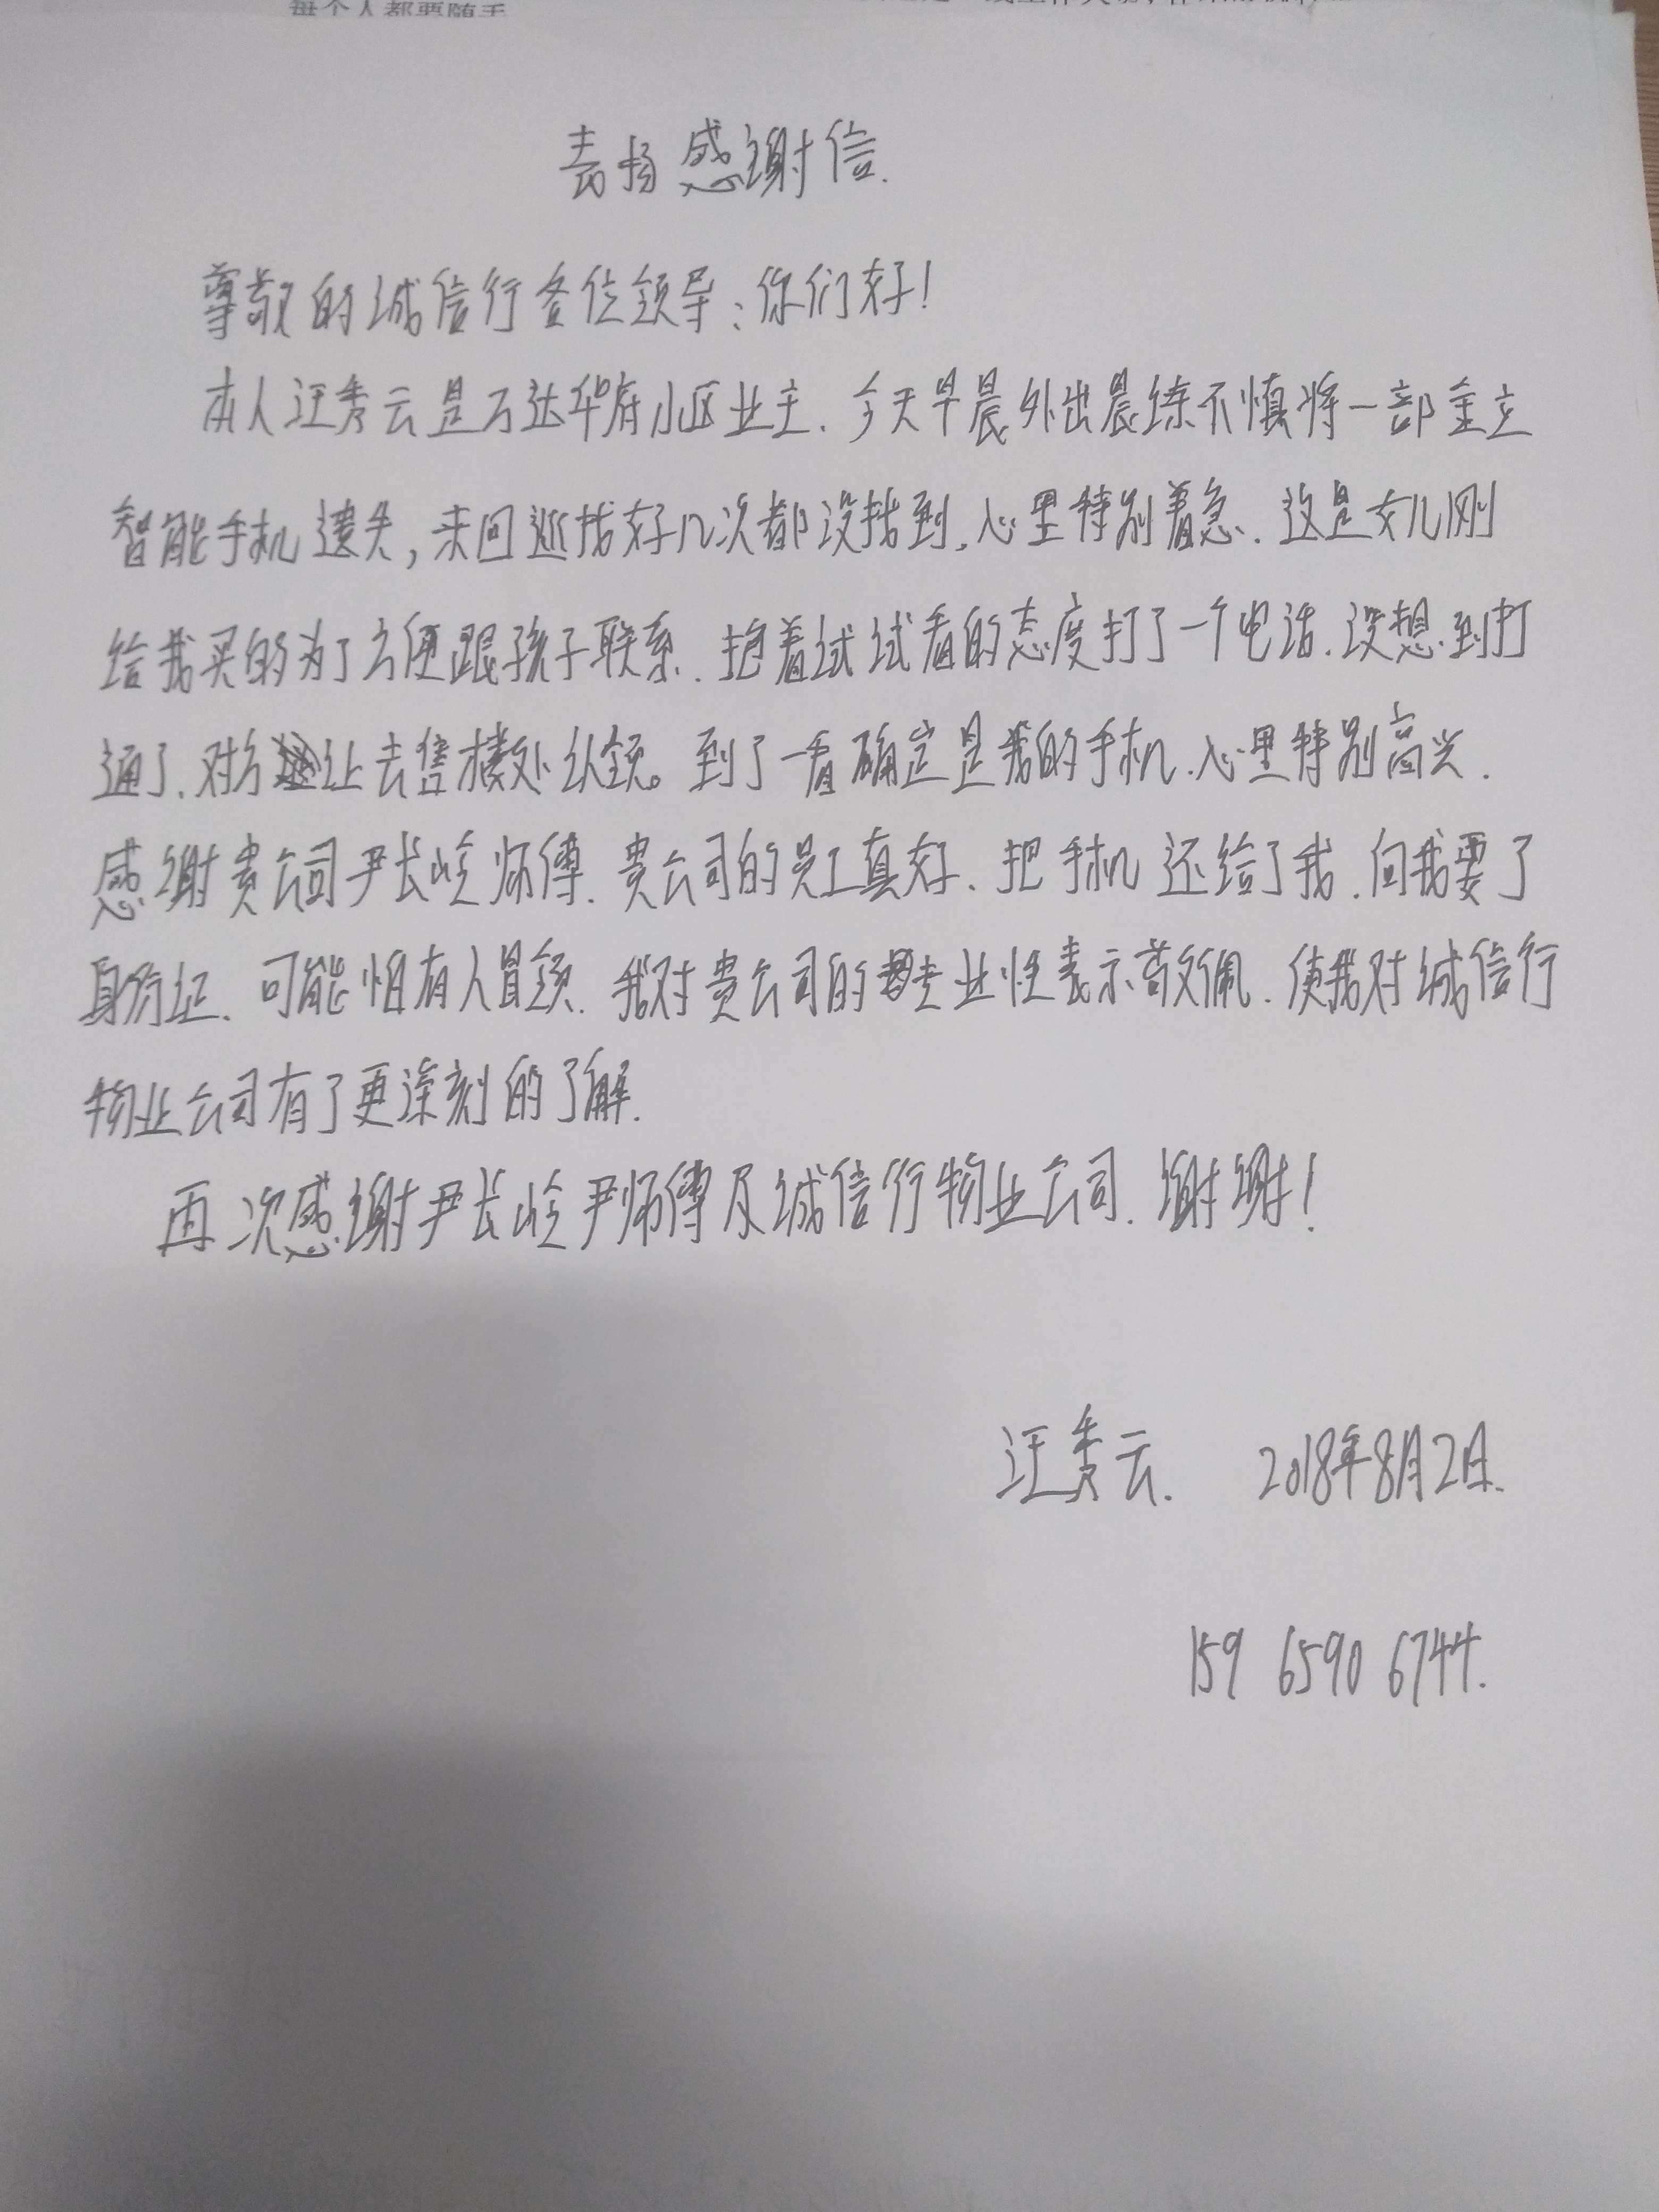 每个人都要随手
表扬感谢信.
尊敬的诚信行各位领导:你们好!
本人汪秀云是万达华府小区业主.今天早晨外出晨练不慎将一部金立
智能手机遗失,来回巡找好几次都没找到,心里特别着急.这是女儿刚
给我买的为了方便跟孩子联系.抱着试试看的态度打了一个电话.没想到打
通了.对方让去售楼处认领。到了一看确定是我的手机.心里特别高兴.
感谢贵公司尹长峑师傅.贵公司的员工真好、把手机还给了我.向我要了
身份证.可能怕有人冒领.我对贵公司的专业性表示敬佩.使我对诚信行
物业公司有了更深刻的了解.
再次感谢尹长峑尹师傅及诚信行物业公司.谢谢!
汪秀云. 2018年8月2日.
159 6590 6744.